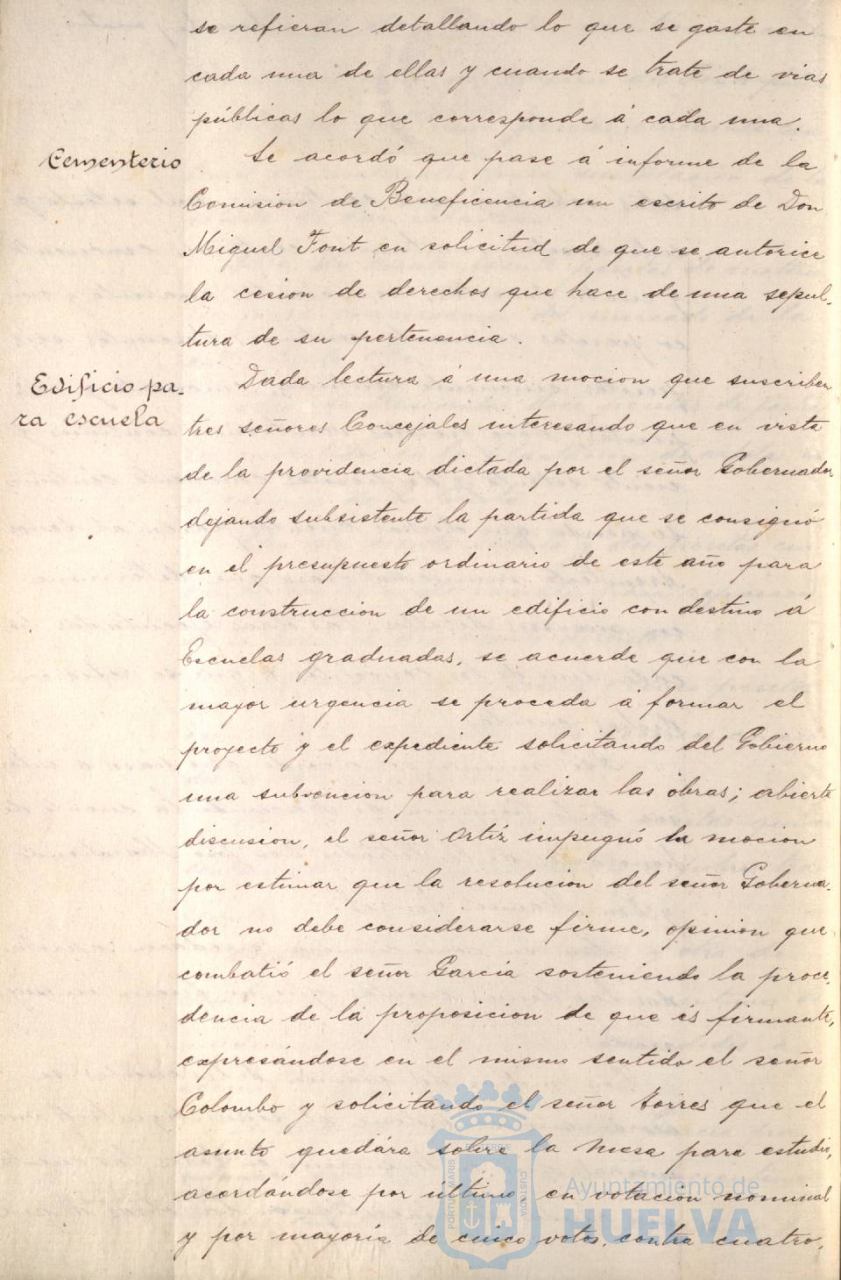 se refieran detallando lo que se gaste en
cada una de ellas y cuando se trate de vias
públicas lo que corresponde á cada una.
Cementerio
Se acordó que pase á informe de la
Comision de Beneficencia un escrito de Don
Miguel Font en solicitud de que se autorice
la cesion de derechos que hace de una sepul-
tura de su pertenencia.
Edificio pa-
ra escuela
Dada lectura á una mocion que suscriben
tres señores Concejales interesando que en vista
de la providencia dictada por el señor Gobernador
dejando subsistente la partida que se consignó
en el presupuesto ordinario de este año para
la construccion de un edificio con destino á
Escuelas graduadas, se acuerde que con la
mayor urgencia se proceda á formar el
proyecto y el expediente solicitando del Gobierno
una subvencion para realizar las obras; abierta
discusion, el señor Ortíz impugnó la mocion
por estimar que la resolucion del señor Goberna-
dor no debe considerarse firme, opinion que
combatió el señor García sosteniendo la proce-
dencia de la proposicion de que és firmante,
expresándose en el mismo sentido el señor
Colombo y solicitando el señor Torres que el
asunto quedára sobre la mesa para estudio,
acordándose por último, en votacion nominal
y por mayoría de cinco votos, contra cuatro,
Ayuntamiento de
HUELVA
PORTUS MARIS
CUSTODIA